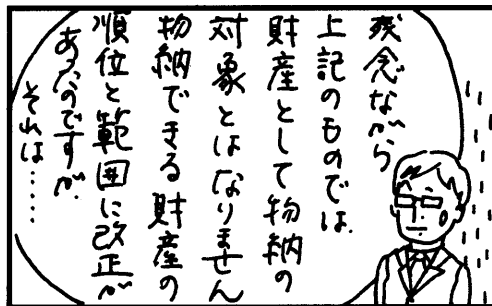 残念ながら
上記のものでは、
財産として物納の
対象とはなりません
物納できる財産の
順位と範囲に改正が
あったのですが、
それは……